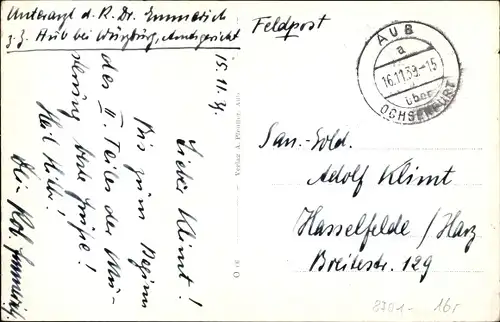 Unterarzt d. R. Dr. Emmerich
z. Z. Aub bei Würzburg, Amtsgericht
15.11.39.
Lieber Klimt!
Bis zum Beginn
des II. Teiles der
beste Grüße!
Heil Hitler!
Verlag A. Pfeiffer, Aub
O 16
Feldpost
AUB
a
16.11.39.-15
über
OCHSENFURT
San.-Sold.
Adolf Klimt
Hasselfelde / Harz
Breitestr. 129
8701- 16r